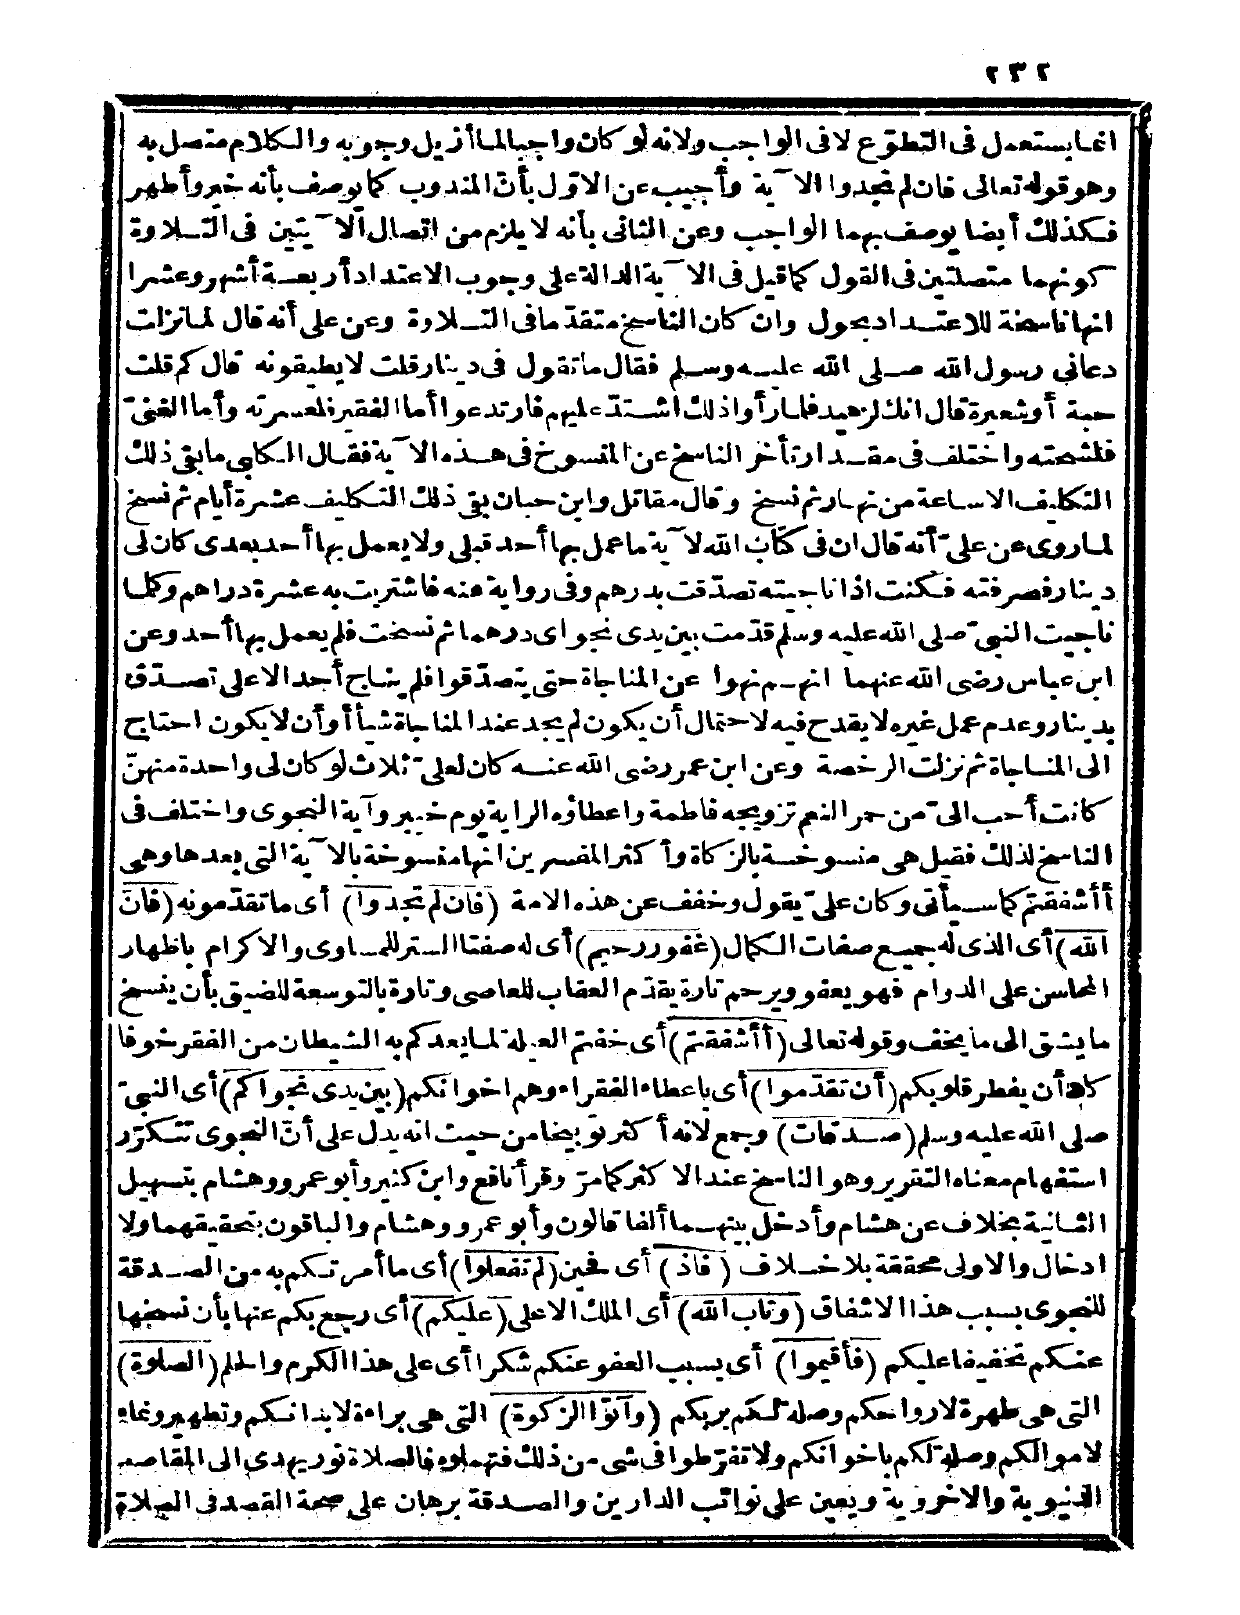 ٢٣٢
انما يستعمل فى التطوّع لا فى الواجب ولانه لو كان واجبا لما أزيل وجوبه والكلام متصل به
وهو قوله تعالى فان لم تجدوا الآية وأجيب عن الاوّل بأنّ المندوب كما يوصف بأنه خير وأطهر
فكذلك أيضا يوصف بهما الواجب وعن الثانى بأنه لا يلزم من اتصال الآيتين فى التلاوة
كونهما متصلتين فى القول كما قيل فى الآية الدالة على وجوب الاعتداد أربعة أشهر وعشرا
انها ناسخة للاعتداد بحول وان كان الناسخ متقدّما فى التلاوة وعن على أنه قال لما نزلت
دعانى رسول الله صلى الله عليه وسلم فقال ما تقول فى دينار قلت لا يطيقونه قال كم قلت
حبة أو شعيرة قال انك لزهيد فلما رأوا ذلك اشتدّ عليهم فارتدعوا أما الفقير فلعسرته وأما الغنىّ
فلشحته واختلف فى مقدار تأخر الناسخ عن المنسوخ فى هذه الآية فقال الكلبى ما بقى ذلك
التكليف الا ساعة من نهار ثم نسخ وقال مقاتل وابن حبان بقى ذلك التكليف عشرة أيام ثم نسخ
لما روى عن علىّ أنه قال ان فى كتاب الله لآية ما عمل بها أحد قبلى ولا يعمل بها أحد بعدى كان لى
دينار فصرفته فكنت اذا ناجيته تصدّقت بدرهم وفى رواية عنه فاشتريت به عشرة دراهم وكلما
ناجيت النبىّ صلى الله عليه وسلم قدّمت بين يدى نجواى درهما ثم نسخت فلم يعمل بها أحد وعن
ابن عباس رضى الله عنهما انهم نهوا عن المناجاة حتى يتصدّقوا فلم يناج أحد الا على تصدّق
بدينار وعدم عمل غيره لا يقدح فيه لاحتمال أن يكون لم يجد عند المناجاة شيأ أو أن لا يكون احتاج
الى المناجاة ثم نزلت الرخصة وعن ابن عمر رضى الله عنه كان لعلىّ ثلاث لو كان لى واحدة منهنّ
كانت أحب الىّ من حمر النعم تزويجه فاطمة واعطاؤه الراية يوم خيبر وآية النجوى واختلف فى
الناسخ لذلك فقيل هى منسوخة بالزكاة وأكثر المفسرين انها منسوخة بالآية التى بعدها وهى
أأشفقتم كما سيأتى وكان علىّ يقول وخفف عن هذه الامة (فان لم تجدوا) أى ما تقدّمونه (فانّ
الله) أى الذى له جميع صفات الكمال (غفور رحيم) أى له صفتا الستر للمساوى والاكرام باظهار
المحاسن على الدوام فهو يعفو ويرحم تارة بقدّم العقاب للعاصى وتارة بالتوسعة للضيق بأن ينسخ
ما يشق الى ما يخف وقوله تعالى (أأشفقتم) أى خفتم العيلة لما يعدكم به الشيطان من الفقر خوفا
كاد أن يفطر قلوبكم (أن تقدّموا) أى باعطاء الفقراء وهم اخوانكم (بين يدى نجواكم) أى النبىّ
صلى الله عليه وسلم (صدقات) وجمع لانه أكثر توبيخا من حيث انه يدل على أنّ النجوى تتكرّر
استفهام معناه التقرير وهو الناسخ عند الاكثر كما مرّ وقرأ نافع وابن كثير وأبو عمرو وهشام بتسهيل
الثانية بخلاف عن هشام وأدخل بينهما ألفا قالون وأبو عمرو وهشام والباقون بتحقيقهما ولا
ادخال والاولى محققة بلا خلاف (فاذ) أى فحين (لم تفعلوا) أى ما أمرتكم به من الصدقة
للنجوى بسبب هذا الاشفاق (وتاب الله) أى الملك الاعلى (عليكم) أى رجع بكم عنها بأن نسخها
عنكم تخفيفا عليكم (فأقيموا) أى بسبب العفو عنكم شكرا أى على هذا الكرم والحلم (الصلوة)
التى هى طهرة لارواحكم وصلة لكم بربكم (وآتوا الزكوة) التى هى براءة لابدانكم وتطهير ونماء
لاموالكم وصلة لكم باخوانكم ولا تفرّطوا فى شىء من ذلك فتهملوه فالصلاة نور يهدى الى المقاصد
الدنيوية والاخروية ويعين على نوائب الدارين والصدقة برهان على صحة القصد فى الصلاة